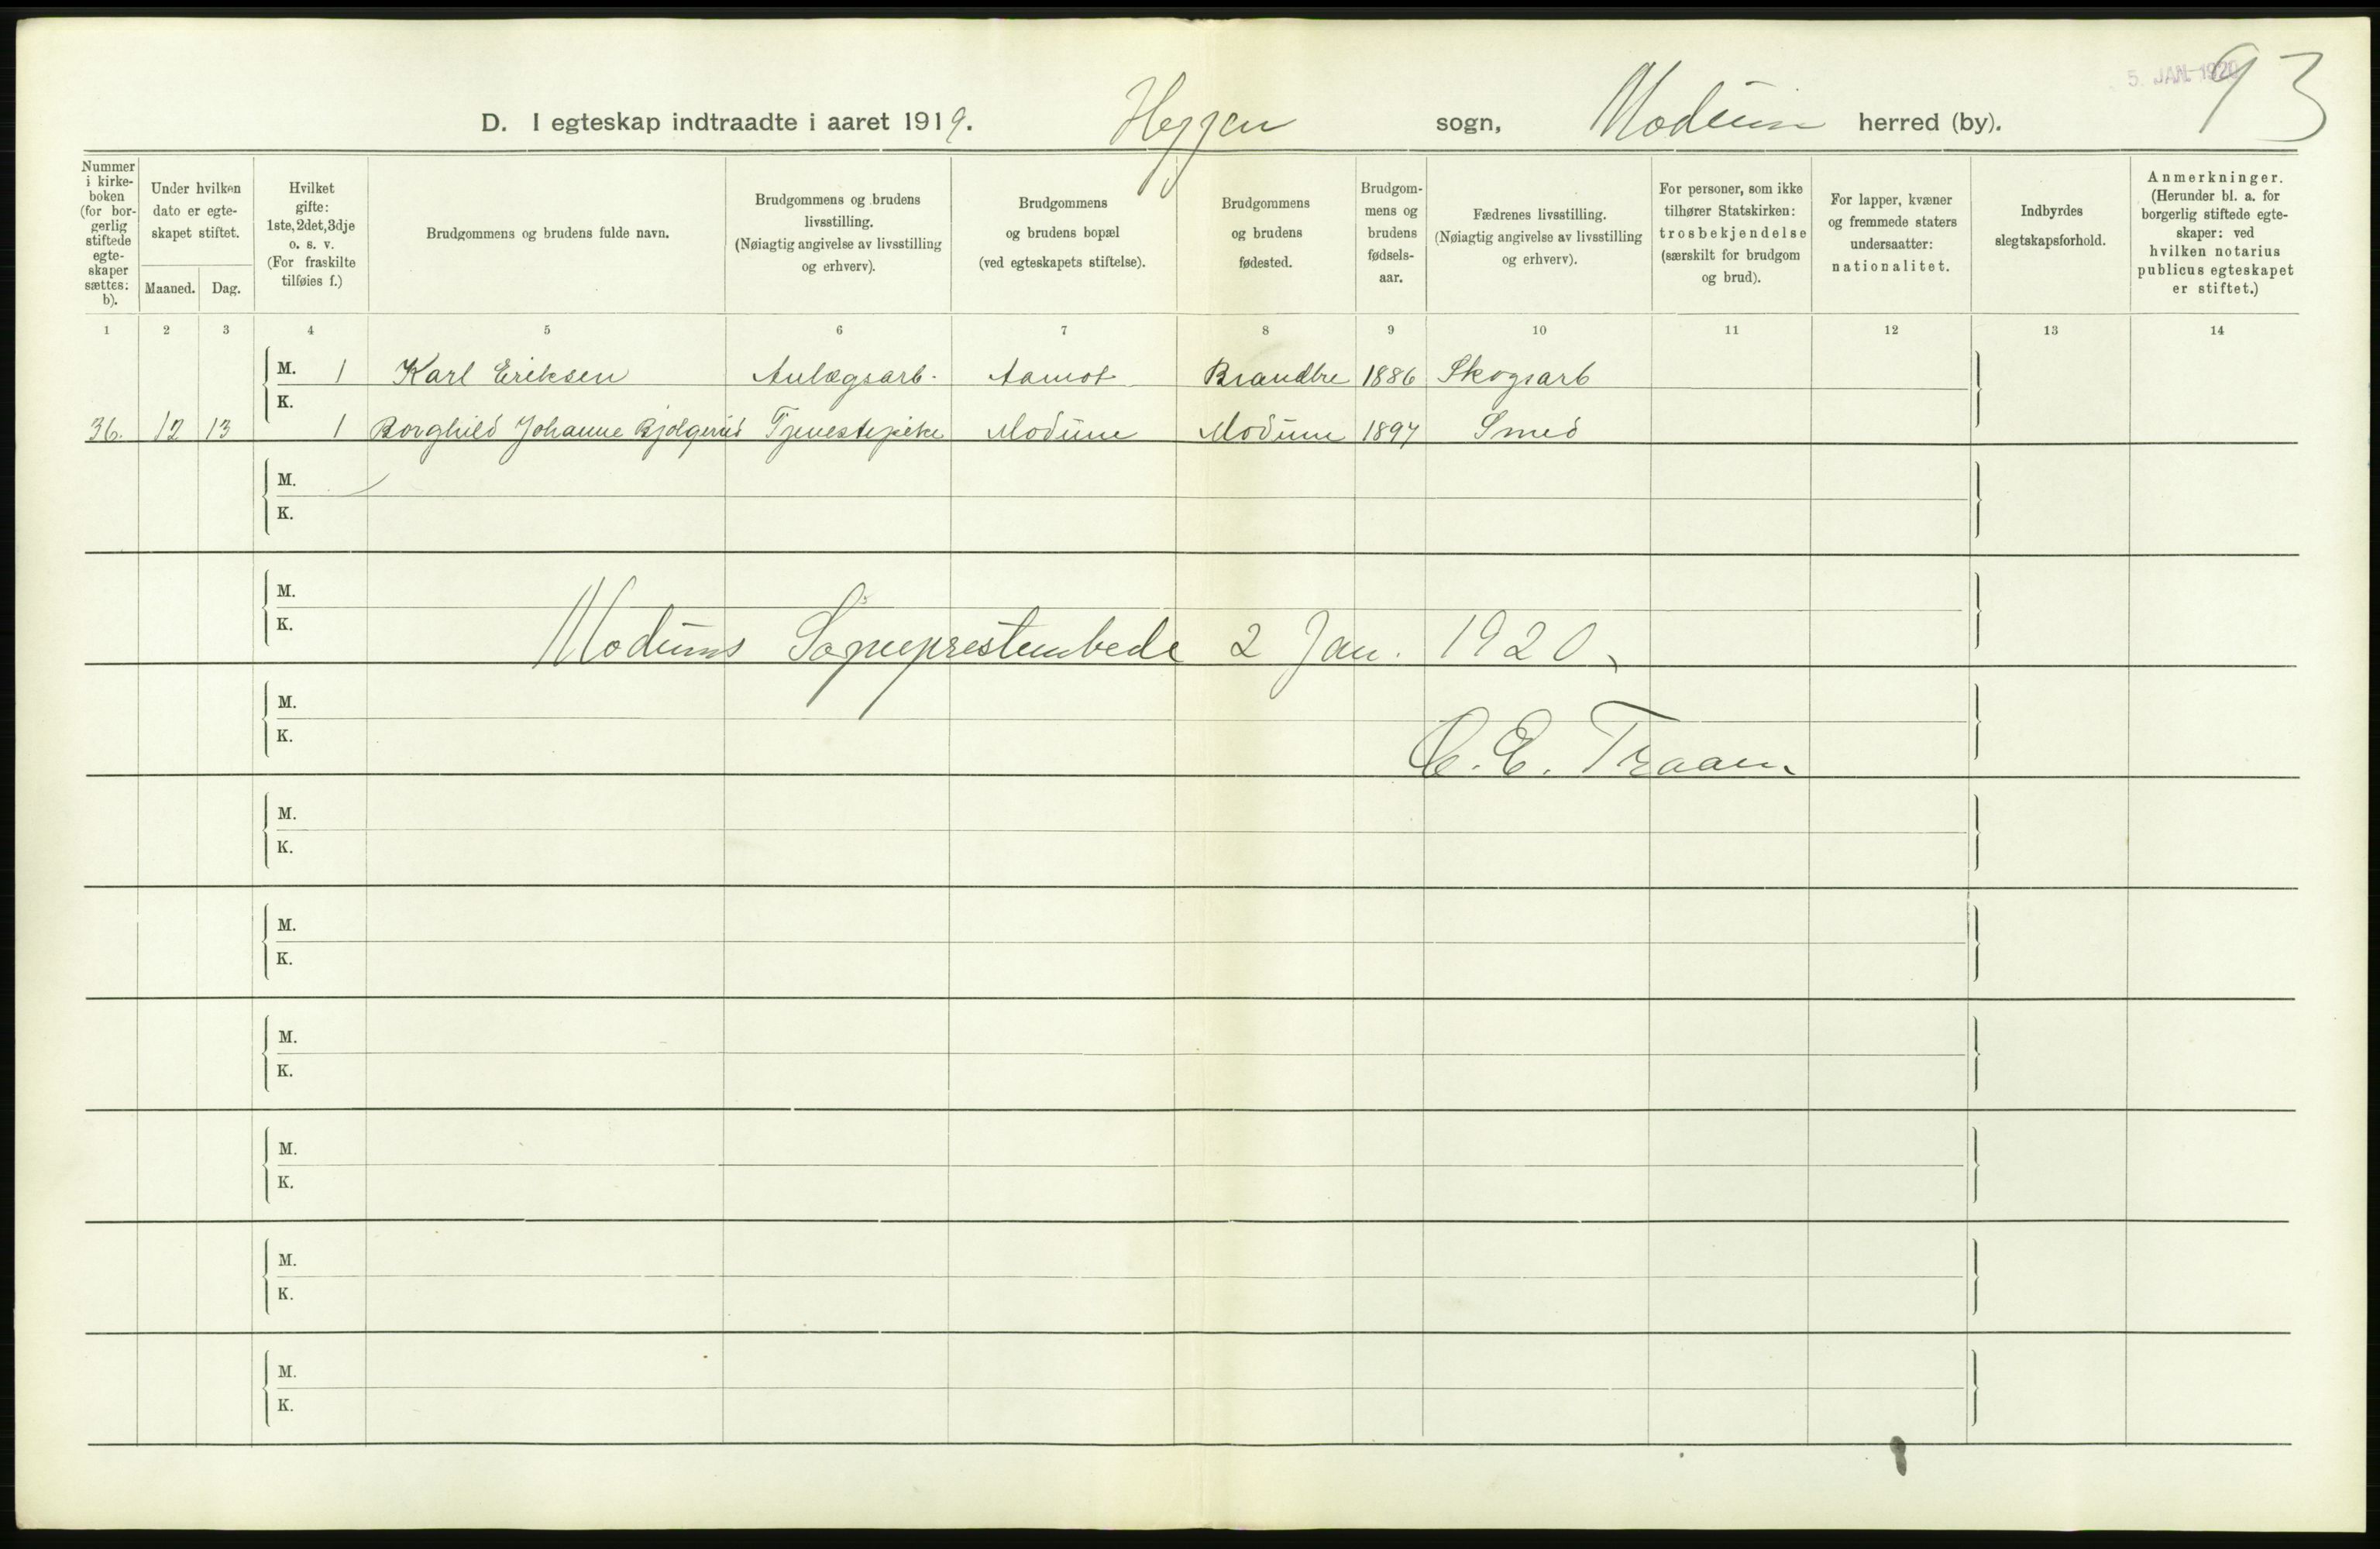 5. JAN. 1920
93
D. I egteskap indtraadte i aaret 1919. Heggen sogn, Modum herred (by).
Nummer
i kirke-
boken
(for bor-
gerlig
stiftede
egte-
skaper
sættes:
b).
Under hvilken
dato er egte-
skapet stiftet.
Maaned. Dag.
Hvilket
gifte:
1ste, 2det, 3dje
o. s. v.
(For fraskilte
tilføies f.)
Brudgommens og brudens fulde navn.
Brudgommens og brudens
livsstilling.
(Nøiagtig angivelse av livsstilling
og erhverv).
Brudgommens
og brudens bopæl
(ved egteskapets stiftelse).
Brudgommens
og brudens
fødested.
Brudgom-
mens og
brudens
fødsels-
aar.
Fædrenes livsstilling.
(Nøiagtig angivelse av livsstilling
og erhverv).
For personer, som ikke
tilhører Statskirken:
trosbekjendelse
(særskilt for brudgom
og brud).
For lapper, kvæner
og fremmede staters
undersaatter:
nationalitet.
Indbyrdes
slegtskapsforhold.
Anmerkninger.
(Herunder bl. a. for
borgerlig stiftede egte-
skaper: ved
hvilken notarius
publicus egteskapet
er stiftet.)
1 2 3 4 5 6 7 8 9 10 11 12 13 14
M. 1 Karl Eriksen Anlægsarb. Aamot 1886 Skogsarb
K.
36. 12 13 1 Borghild Johanne Tjenestepike Modum Modum 1897 Smed
M.
K.
M.
K.
Modums Sogneprestembede 2 Jan. 1920.
M.
K.
C. E. Traaen.
M.
K.
M.
K.
M.
K.
M.
K.
M.
K.
M.
K.